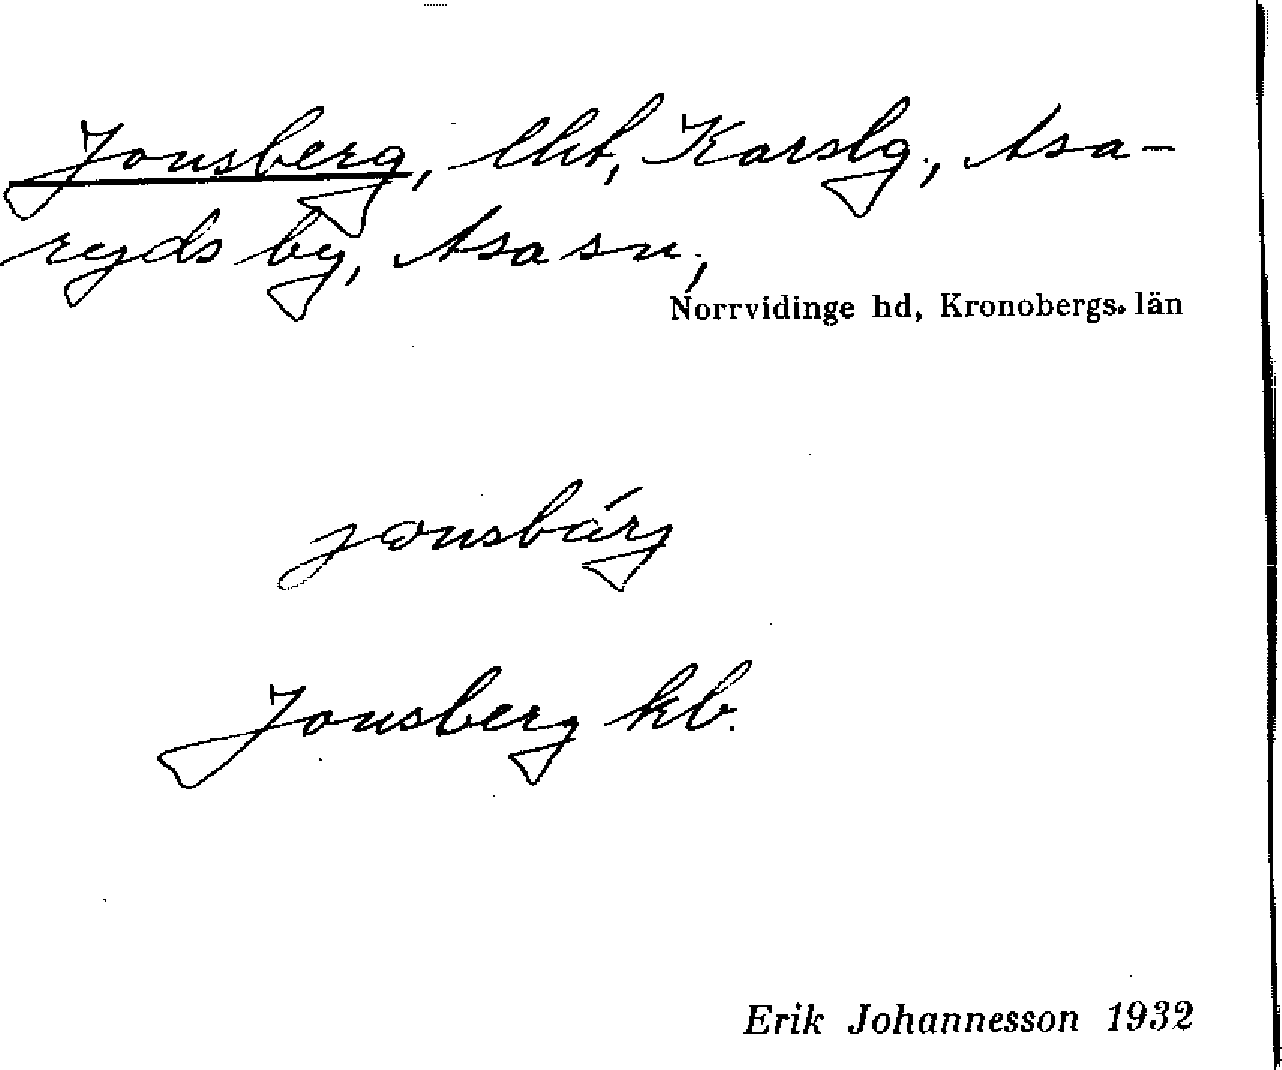 Jonsberg, lht, Karslg., Asa-
ryds by, Asa sn,
Norrvidinge hd, Kronobergs län
jonsbárj
Jonsberg kb.
Erik Johannesson 1932